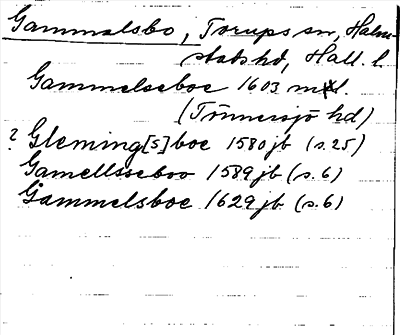 Gammalsbo, Torups sn, Halm-
stads hd, Hall. l.
Gammelseboe 1603 ml.
(Tönnersjö hd)
? Gleming[s]boe 1580 jb (s. 25)
Gamellsseboo 1589 jb (s. 6)
Gammelsboe 1629 jb (s. 6)